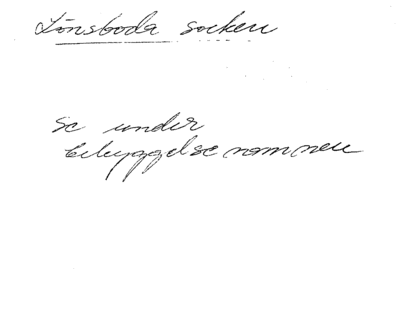 Lönsboda socken
Se under
bebyggelsenamnen